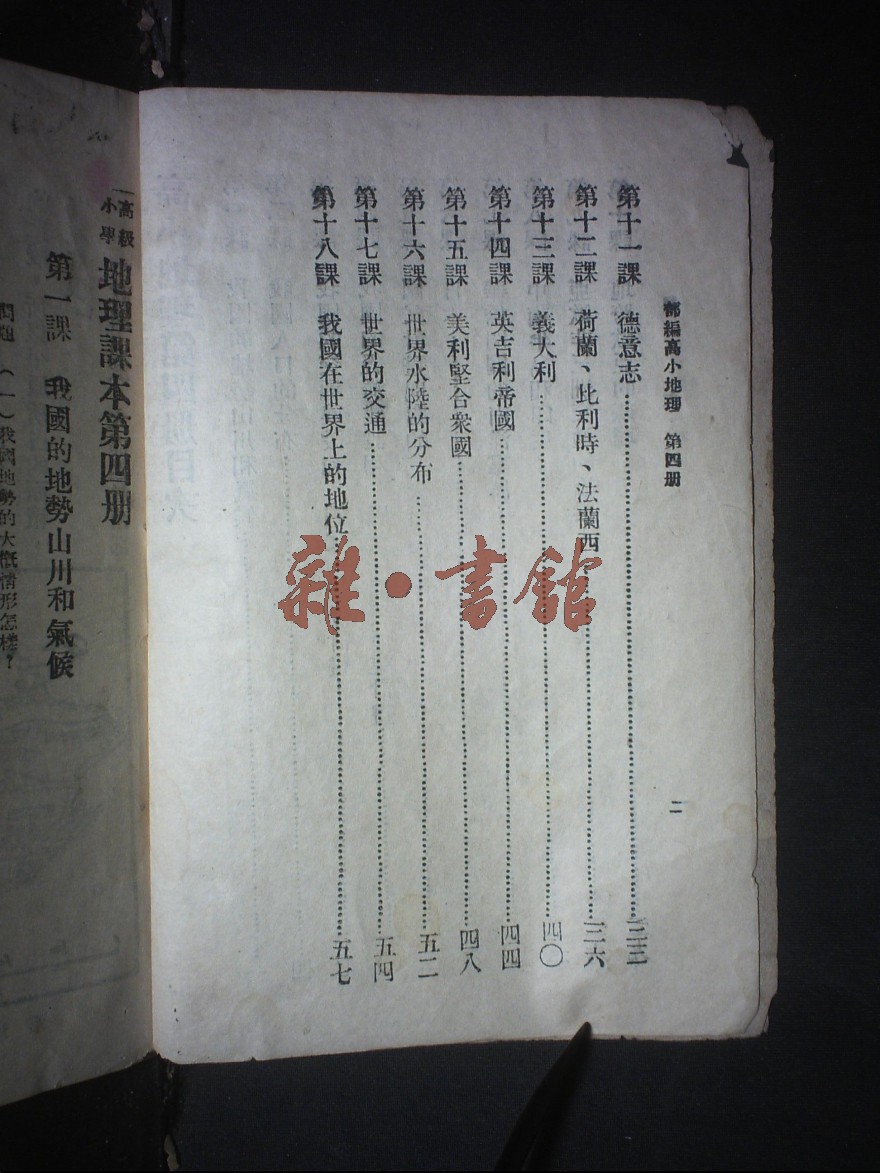 部編高小地理 第四册
二
第十一課 德意志……三三
第十二課 荷蘭、比利時、法蘭西……三六
第十三課 義大利……四〇
第十四課 英吉利帝國……四四
第十五課 美利堅合衆國……四八
第十六課 世界水陸的分布……五二
第十七課 世界的交通……五四
第十八課 我國在世界上的地位……五七
雜·書館
高級小學 地理課本第四册
第一課 我國的地勢山川和氣候
問題 (一)我國地勢的大概情形怎樣?